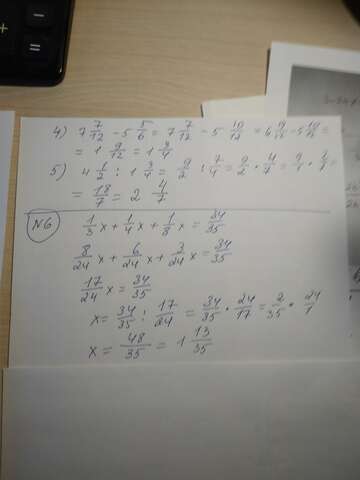 4) 7 7/12 - 5 5/6 = 7 7/12 - 5 10/12 = 6 19/12 - 5 10/12 =
= 1 9/12 = 1 3/4
5) 4 1/2 : 1 3/4 = 9/2 : 7/4 = 9/2 · 4/7 = 9/1 · 2/7 =
= 18/7 = 2 4/7
N6
1/3 x + 1/4 x + 1/8 x = 34/35
8/24 x + 6/24 x + 3/24 x = 34/35
17/24 x = 34/35
x = 34/35 : 17/24 = 34/35 · 24/17 = 2/35 · 24/1
x = 48/35 = 1 13/35